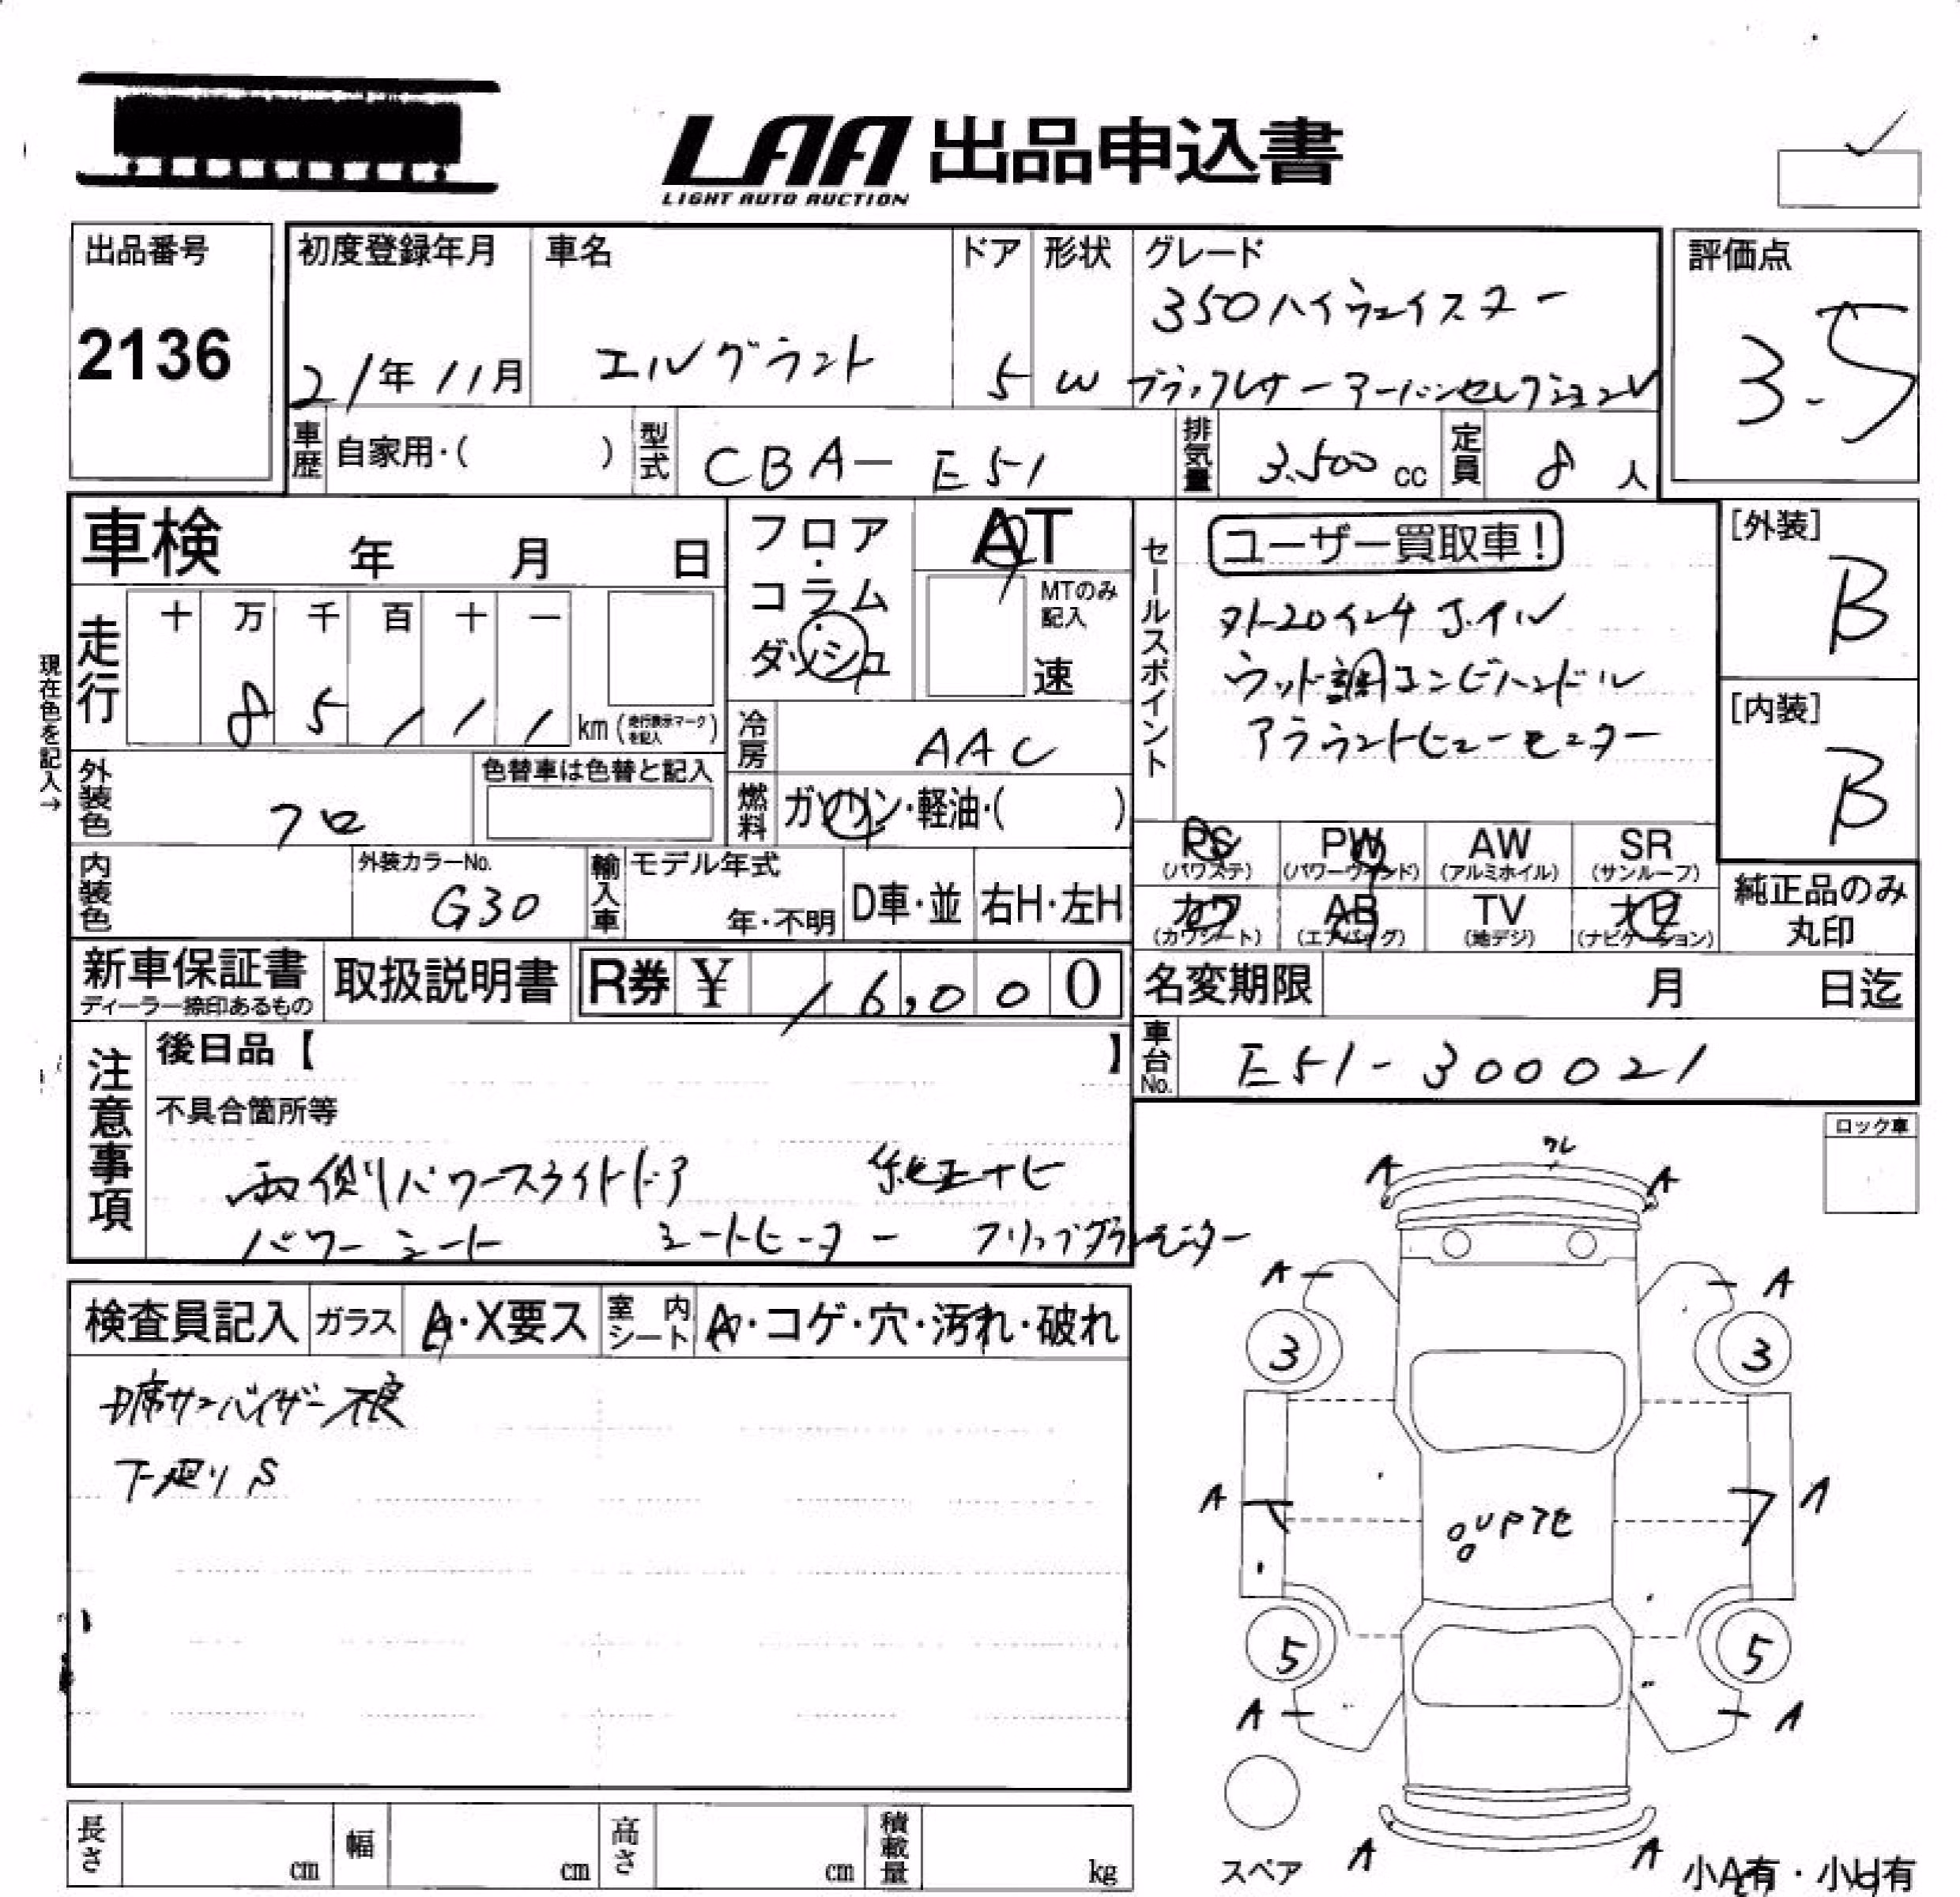 LAA 出品申込書
LIGHT AUTO AUCTION
出品番号
2136
初度登録年月
21年11月
車名
エルグランド
ドア
5
形状
W
グレード
350ハイウェイスター
ブラックレザーアーバンセレクションV
評価点
3.5
車歴
自家用・( )
型式
CBA-E51
排気量
3.500cc
定員
8人
車検 年 月 日
フロア・コラム・ダッシュ
AT
MTのみ記入
速
セールスポイント
ユーザー買取車!
外20インチホイル
ウッド調コンビハンドル
アラウンドビューモニター
[外装]
B
[内装]
B
現在色を記入→
走行
十 万 千 百 十 一
8 5 1 1 1 km(走行表示マークを記入)
冷房
AAC
外装色
クロ
色替車は色替と記入
燃料
ガソリン・軽油・( )
PS (パワステ)
PW (パワーウィンド)
AW (アルミホイル)
SR (サンルーフ)
カワ (カワシート)
AB (エアバッグ)
TV (地デジ)
ナビ (ナビゲーション)
純正品のみ丸印
内装色
外装カラーNo.
G30
輸入車
モデル年式
年・不明
D車・並
右H・左H
新車保証書
ディーラー捺印あるもの
取扱説明書
R券 ¥ 16,000
名変期限 月 日迄
車台No.
E51-300021
注意事項
後日品【 】
不具合箇所等
両側パワースライドドア 純正ナビ
パワーシート シートヒーター フリップダウンモニター
ロック車
検査員記入
ガラス
A・X要ス
室内シート
A・コゲ・穴・汚れ・破れ
D席サンバイザー不良
下廻りS
ワレ
A A
A A
3 3
A A
UP
5 5
A A
スペア
A A
小A有・小U有
長さ cm
幅 cm
高さ cm
積載量 kg